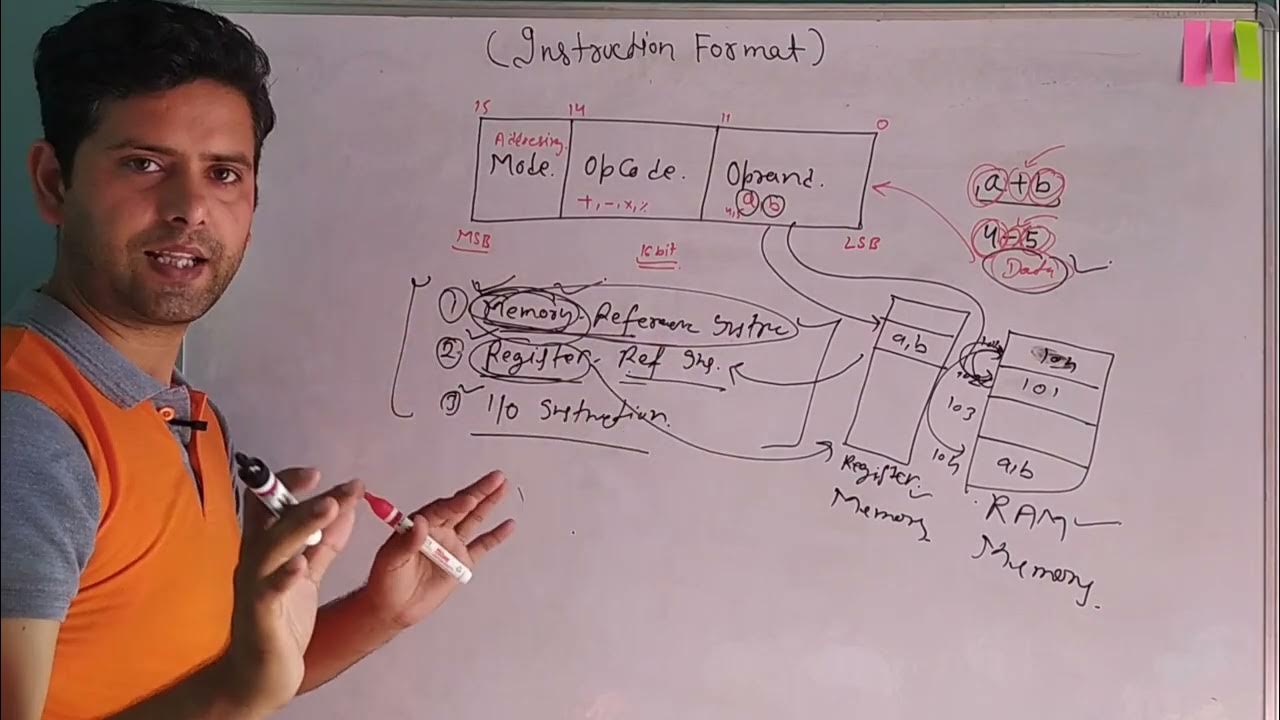 (Instruction Format)
15 14 11 0
Addressing
Mode. OpCode. Oprand.
+, -, x, %
a b
MSB 16 bit LSB
a + b
4 - 5
Data
① Memory. Reference
② Register - Ref Ins.
③ I/O
a,b
Register
Memory
101
103
104
a,b
RAM
Memory.